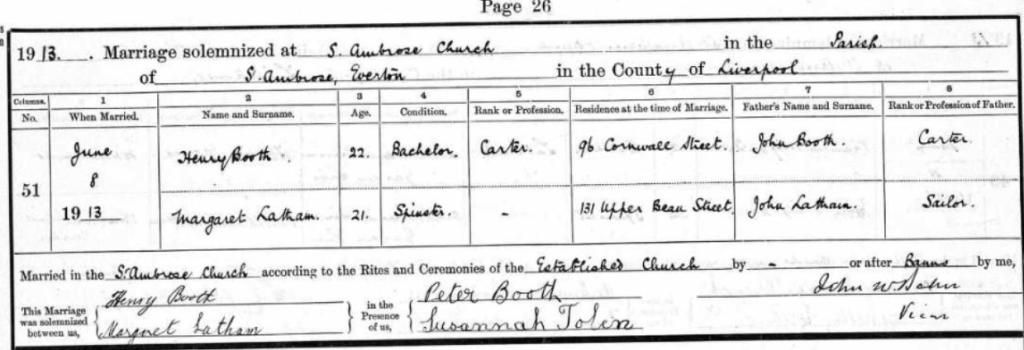 Page 26
1913. Marriage solemnized at S. Ambrose Church in the Parish
of S. Ambrose, Everton in the County of Liverpool
Columns. 1 2 3 4 5 6 7 8
No. When Married. Name and Surname. Age. Condition. Rank or Profession. Residence at the time of Marriage. Father's Name and Surname. Rank or Profession of Father.
51 June 8 1913 Henry Booth. 22. Bachelor. Carter. 96 Cornwall Street. John Booth. Carter.
Margaret Latham. 21. Spinster. - 131 Upper Beau Street. John Latham. Sailor.
Married in the S. Ambrose Church according to the Rites and Ceremonies of the Established Church by - or after Banns by me,
This Marriage was solemnized between us, Henry Booth in the Presence of us, Peter Booth John W
Margret Latham Susannah Vicar